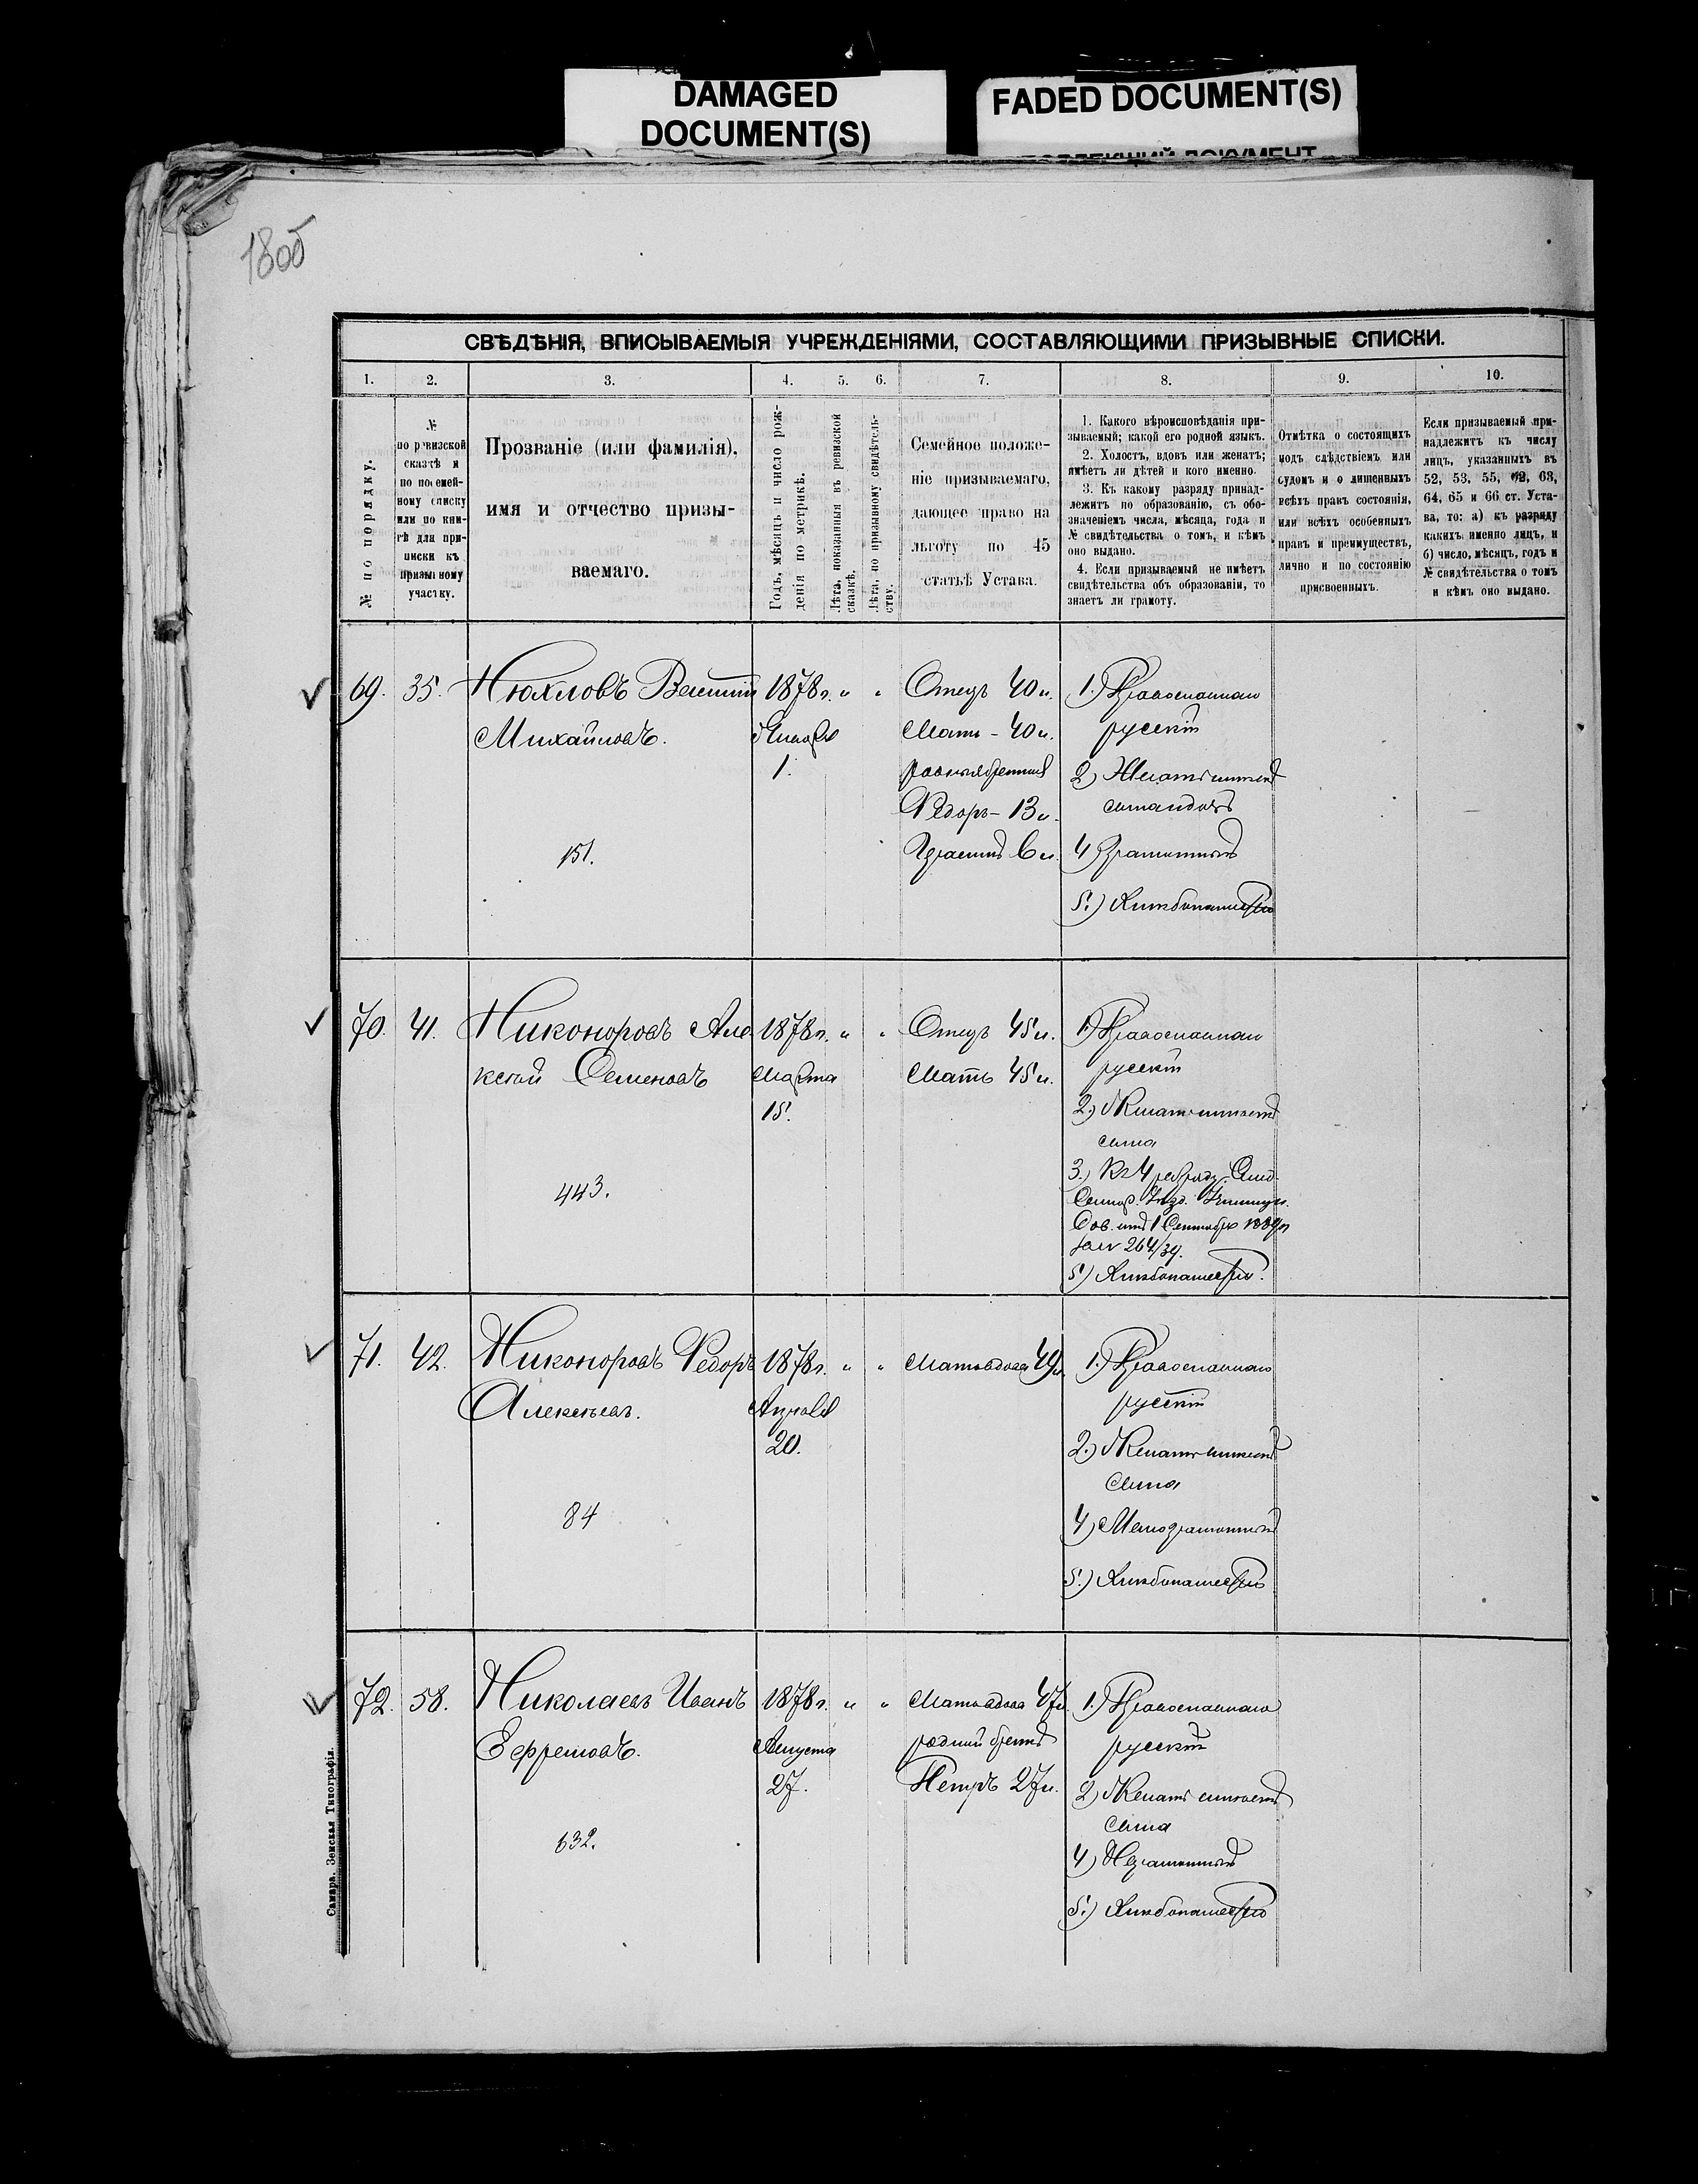 DAMAGED
DOCUMENT(S)
FADED DOCUMENT(S)
180об
СВѢДѢНІЯ, ВПИСЫВАЕМЫЯ УЧРЕЖДЕНІЯМИ, СОСТАВЛЯЮЩИМИ ПРИЗЫВНЫЕ СПИСКИ.
1. 2. 3. 4. 5. 6. 7. 8. 9. 10.
№ по порядку.
№
по ревизской
сказкѣ и
по посемей-
ному списку
или по кни-
гѣ для при-
писки къ
призывному
участку.
Прозваніе (или фамилія),
имя и отчество призы-
ваемаго.
Годъ, мѣсяцъ и число рож-
денія по метрикѣ.
Лѣта, показанныя въ ревизской
сказкѣ.
Лѣта, по призывному свидѣтель-
ству.
Семейное положе-
ніе призываемаго,
дающее право на
льготу по 45
статьѣ Устава.
1. Какого вѣроисповѣданія при-
зываемый; какой его родной языкъ.
2. Холостъ, вдовъ или женатъ;
имѣетъ ли дѣтей и кого именно.
3. Къ какому разряду принад-
лежитъ по образованію, съ обо-
значеніемъ числа, мѣсяца, года и
№ свидѣтельства о томъ, и кѣмъ
оно выдано.
4. Если призываемый не имѣетъ
свидѣтельства объ образованіи, то
знаетъ ли грамоту.
Отмѣтка о состоящихъ
подъ слѣдствіемъ или
судомъ и о лишенныхъ
всѣхъ правъ состоянія,
или всѣхъ особенныхъ
правъ и преимуществъ,
лично и по состоянію
присвоенныхъ.
Если призываемый при-
надлежитъ къ числу
лицъ, указанныхъ въ
52, 53, 55, 62, 63,
64, 65 и 66 ст. Уста-
ва, то: а) къ разряду
какихъ именно лицъ, и
б) число, мѣсяцъ, годъ и
№ свидѣтельства о томъ
и кѣмъ оно выдано.
69. 35. Нюхловъ
Михайловъ.
151.
1878 г. " "
Января
1.
Отецъ 40 л.
Мать - 40 л.
Ѳедоръ - 13 л.
6 л.
1.) Православнаго
русскій
2) Женатъ имѣетъ
4) Грамотный
5.) Хлѣбопашество
70. 41. Никоноровъ Але-
ксѣй Семеновъ
443.
1878 г. " "
Марта
15.
Отецъ 45 л.
Мать 45 л.
1) Православнаго
русскій
2.) Женатъ имѣетъ
сына
3.) Къ 4 разряду.
Сов. отъ 1 Сентября 1889 г
за № 264/34.
5) Хлѣбопашество.
71. 42. Никоноровъ Ѳедоръ
Алексѣевъ.
84
1878 г. " "
Апрѣля
20.
Мать вдова 49 л.
1.) Православнаго
русскій
2.) Женатъ имѣетъ
сына
4) Малограмотный
5.) Хлѣбопашество
72. 58. Николаевъ Иванъ
Ефремовъ.
632.
1878 г. " "
Августа
27.
Мать вдова 47 л.
родной братъ
Петръ 27 л.
1.) Православнаго
русскій
2) Женатъ имѣетъ
сына
4) Неграмотный
5.) Хлѣбопашество
Самара. Земская Типографія.